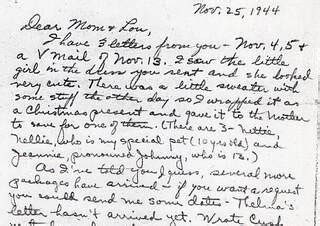 Nov. 25, 1944
Dear Mom & Lou,
I have 3 letters from you - Nov. 4, 5 &
a V Mail of Nov. 13. I saw the little
girl in the dress you sent and she looked
very cute. There was a little sweater with
some stuff the other day so I wrapped it as
a Christmas present and gave it to the Mother
to save for one of them. (There are 3 - Nettie,
Nellie, who is my special pet (10 years old) and
Jeannie, pronounced Johnny, who is 13.)
As I've told you I guess, several more
packages have arrived - if you want a request
you could send me some dates - Thelma's
letter hasn't arrived yet. Wrote